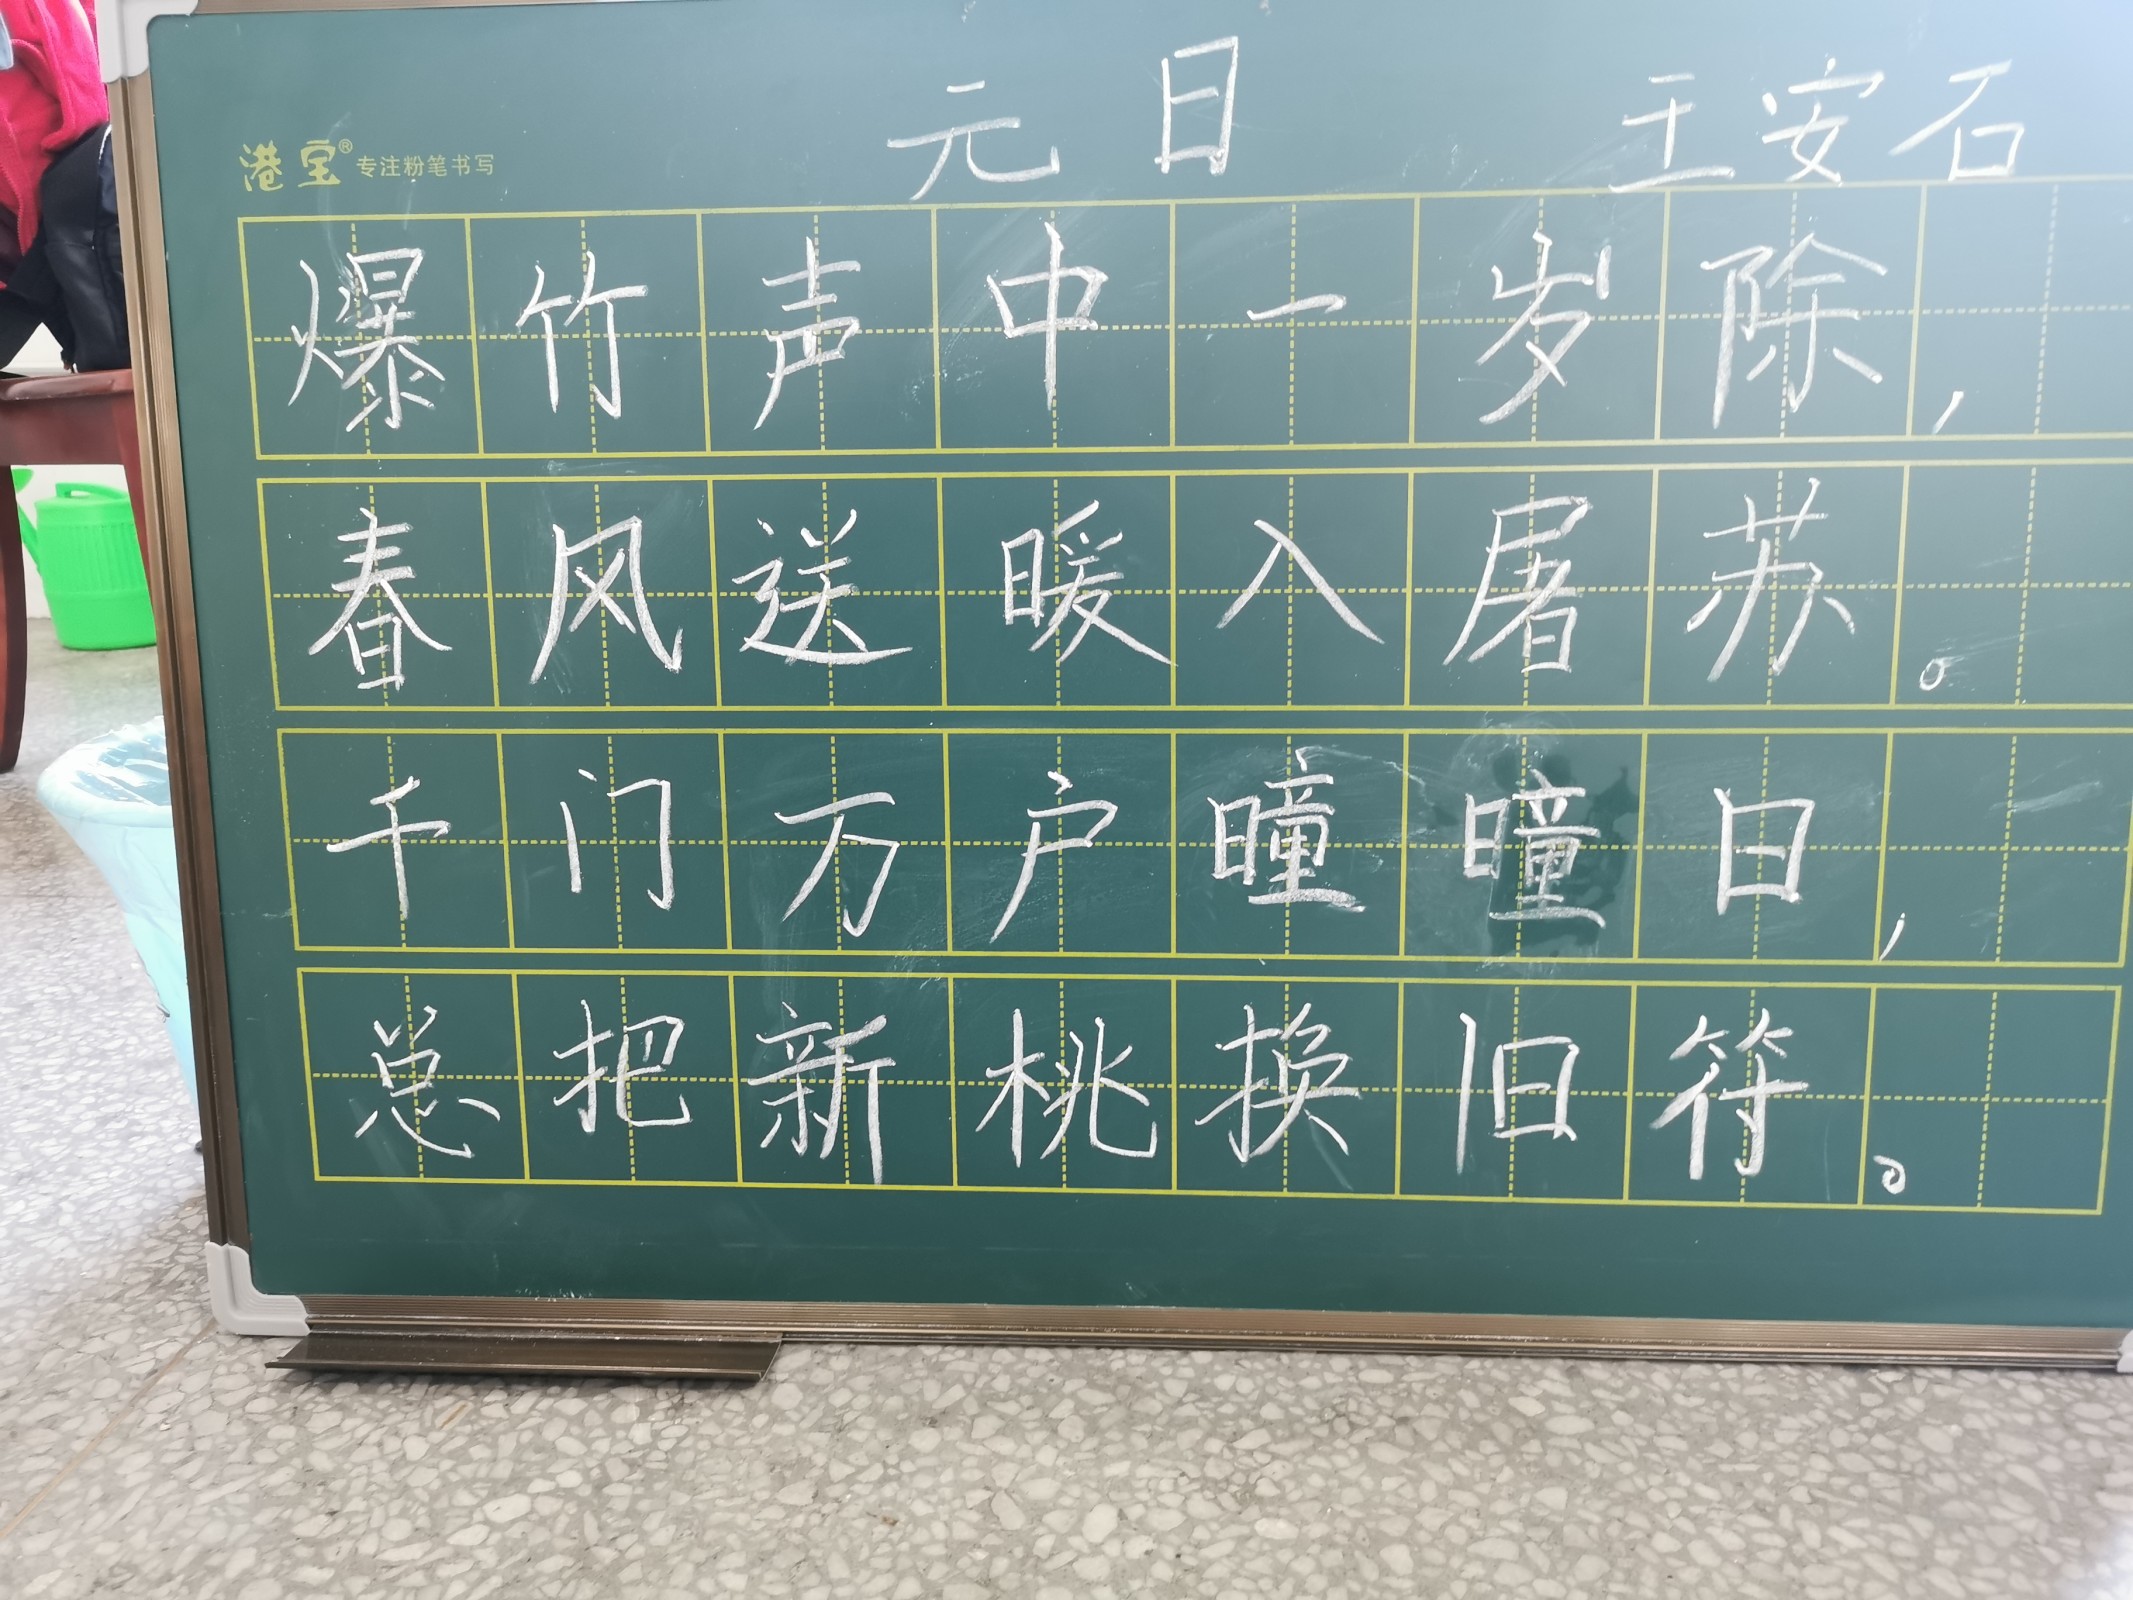 元日 王安石
港宝® 专注粉笔书写
爆竹声中一岁除，
春风送暖入屠苏。
千门万户曈曈日，
总把新桃换旧符。